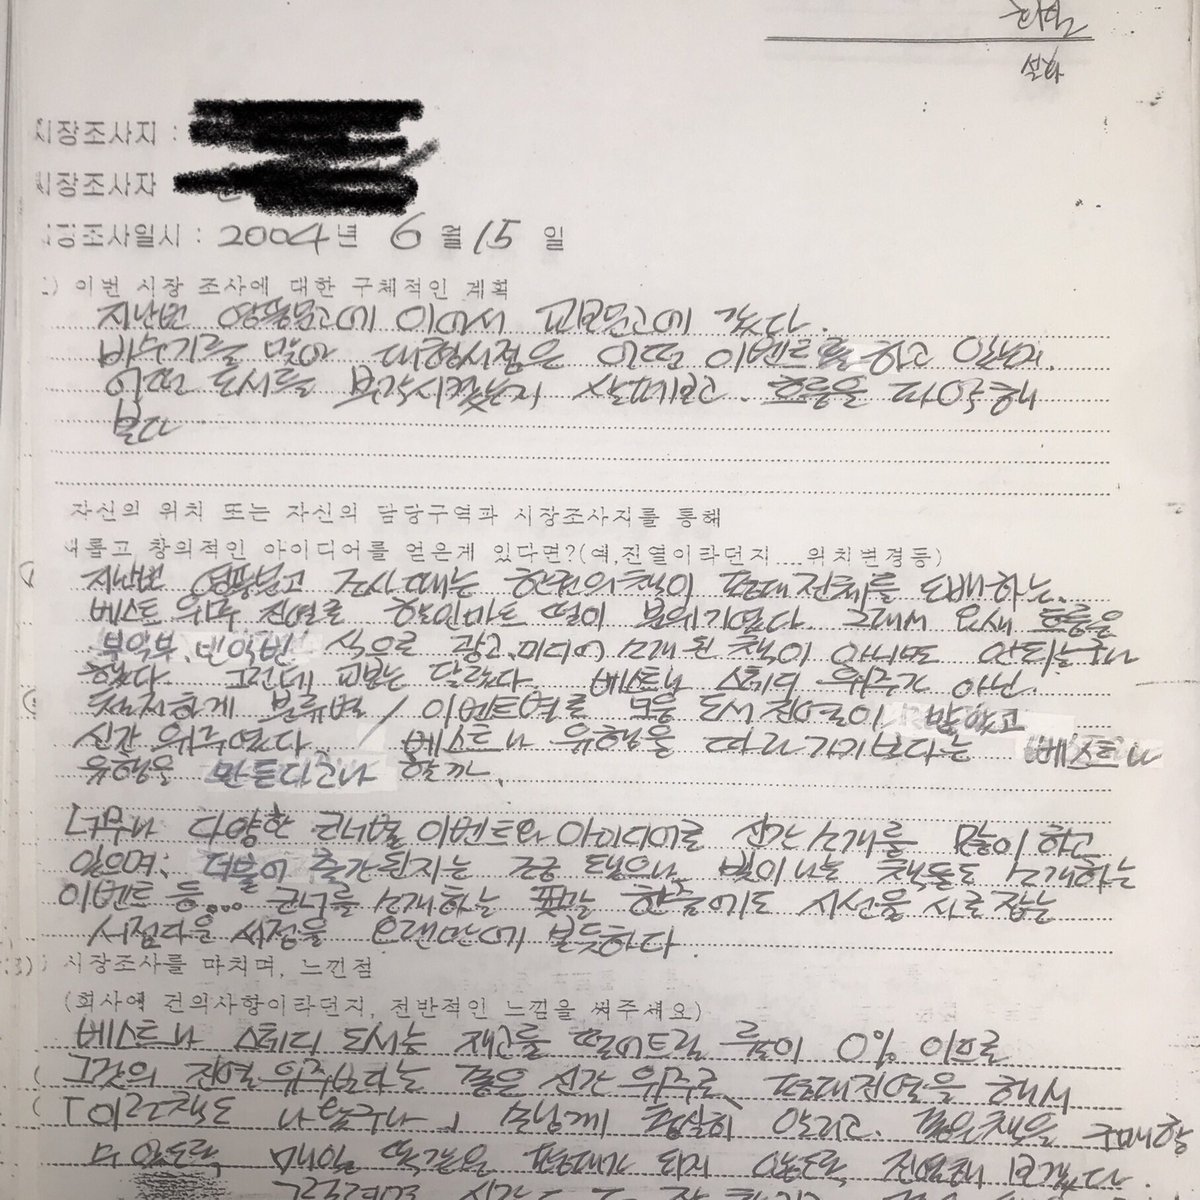 시장조사지 :
시장조사자
시장조사일시 : 2004년 6월 15일
1) 이번 시장 조사에 대한 구체적인 계획
지난번 영풍문고에 이어서 교보문고에 갔다.
바뀌기를 맞아 대형서점은 어떤 이벤트를 하고 있는지.
어떤 도서를 부각시켰는지 살펴보고. 흐름을 파악해
본다
자신의 위치 또는 자신의 담당구역과 시장조사지를 통해
새롭고 창의적인 아이디어를 얻은게 있다면?(예,진열이라던지....위치변경등)
지난번 영풍문고 조사때는 한권의책이 평대전체를 도배하는.
베스트 위주 진열로 할인마트 떨이 분위기였다. 그래서 요새 흐름은
부익부, 빈익빈 식으로 광고.미디어 소개된 책이 아니면 안되는구나
했다. 그런데 교보는 달랐다. 베스트나 스테디 위주가 아닌.
철저하게 분류별/이벤트별로 모음 도서 진열이 많았고
신간 위주였다. / 베스트나 유행을 따라가기보다는 베스트나
유행을 만든다고나 할까.
너무나 다양한 코너별 이벤트와 아이디어로 신간소개를 많이 하고
있으며; 더불어 출간된지는 조금 됐으나. 빛이나는 책들도 소개하는
이벤트 등... 코너를 소개하는 푯말 한줄에도 시선을 사로잡는
서점다운 서점을 오랜만에 본듯하다.
3) 시장조사를 마치며, 느낀점
(회사에 건의사항이라던지, 전반적인 느낌을 써주세요)
베스트나 스테디 도서는 재고를 떨어트릴 률이 0% 이므로
그것의 진열 위주보다는 좋은 신간 위주로, 평대진열을 해서
「이런책도 나왔구나」 손님께 확실히 알리고. 좋은책을 구매할
수 있도록, 매일 똑같은 평대가 되지 않도록, 진열해 보겠다.